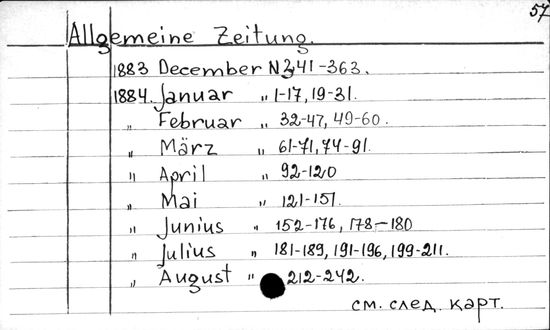 57
Allgemeine Zeitung.
1883 December N 341-363.
1884. Januar „ 1-17, 19-31.
„ Februar „ 32-47, 49-60.
„ März „ 61-71, 74-91.
„ April „ 92-120
„ Mai „ 121-151.
„ Junius „ 152-176, 178-180
„ Julius „ 181-189, 191-196, 199-211.
„ August „ 212-242.
см. след. карт.